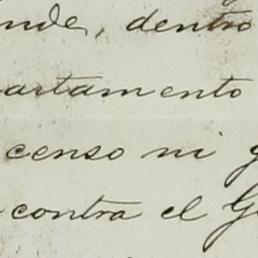 nde, dentro
artamento
censo ni g
contra el G